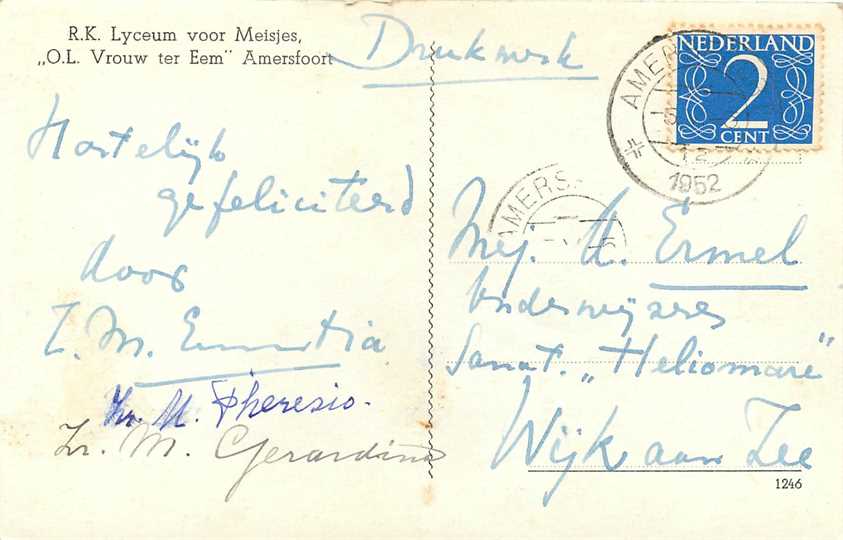 R.K. Lyceum voor Meisjes,
„O.L. Vrouw ter Eem" Amersfoort
Drukwerk
Hartelijk
gefeliciteerd
door
Z. M.
Zr. M. Theresio.
Zr. M. Gerardina
NEDERLAND
2
CENT
AMER
1952
AMERS
Mej. A. Ermel
Onderwijzeres
Sanat. „Heliomare"
Wijk aan Zee
1246